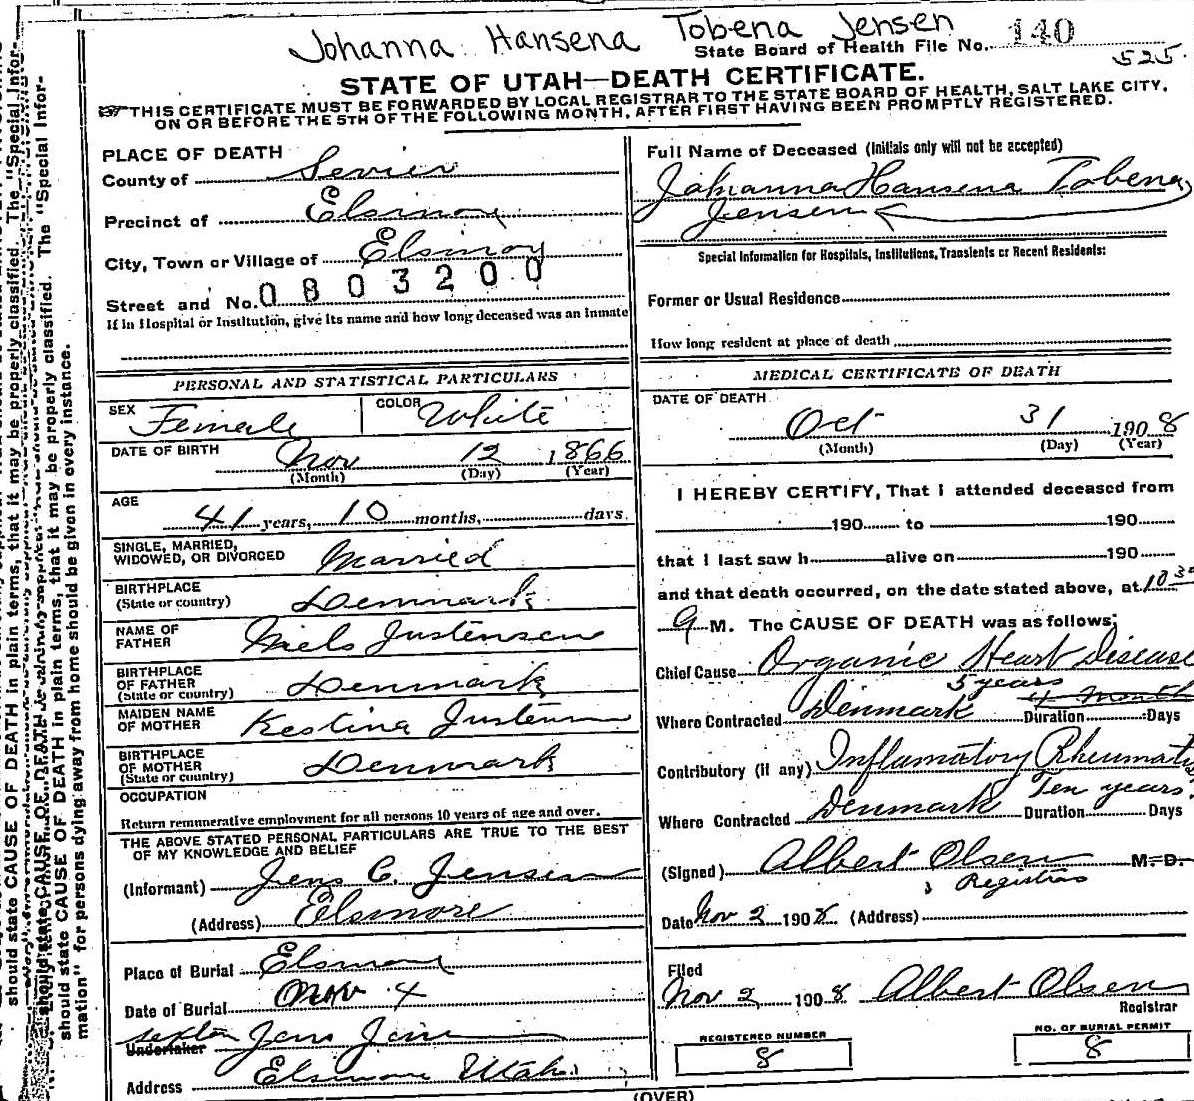 Johanna Hansena Tobena Jensen
State Board of Health File No. 140
525.
STATE OF UTAH—DEATH CERTIFICATE.
THIS CERTIFICATE MUST BE FORWARDED BY LOCAL REGISTRAR TO THE STATE BOARD OF HEALTH, SALT LAKE CITY,
ON OR BEFORE THE 5TH OF THE FOLLOWING MONTH, AFTER FIRST HAVING BEEN PROMPTLY REGISTERED.
PLACE OF DEATH
County of Sevier
Precinct of Elsinore
City, Town or Village of Elsinore
Street and No. 0803200
If in Hospital or Institution, give its name and how long deceased was an Inmate
PERSONAL AND STATISTICAL PARTICULARS
SEX Female COLOR White
DATE OF BIRTH Nov 12 1866
(Month) (Day) (Year)
AGE
41 years, 10 months, days.
SINGLE, MARRIED,
WIDOWED, OR DIVORCED Married
BIRTHPLACE
(State or country) Denmark
NAME OF
FATHER Niels Justensen
BIRTHPLACE
OF FATHER
(State or country) Denmark
MAIDEN NAME
OF MOTHER Kestina Justensen
BIRTHPLACE
OF MOTHER
(State or country) Denmark
OCCUPATION
Return remunerative employment for all persons 10 years of age and over.
THE ABOVE STATED PERSONAL PARTICULARS ARE TRUE TO THE BEST
OF MY KNOWLEDGE AND BELIEF
(Informant) Jens C. Jensen
(Address) Elsinore
Place of Burial Elsinore
Date of Burial Nov 4
sexton Jens Jensen
Undertaker
Address Elsinore Utah
Full Name of Deceased (Initials only will not be accepted)
Johanna Hansena Tobena
Jensen
Special Information for Hospitals, Institutions, Transients or Recent Residents:
Former or Usual Residence
How long resident at place of death
MEDICAL CERTIFICATE OF DEATH
DATE OF DEATH
Oct 31 1908
(Month) (Day) (Year)
I HEREBY CERTIFY, That I attended deceased from
190 to 190
that I last saw h alive on 190
and that death occurred, on the date stated above, at 10 30
M. The CAUSE OF DEATH was as follows;
Chief Cause Organic Heart Disease
5 years 4 Month
Where Contracted Denmark Duration Days
Contributory (if any) Inflamatory Rheumatis
Ten years.
Where Contracted Denmark Duration Days
(Signed) Albert Olsen M. D.
Registrar
Date Nov 2 1908 (Address)
Filed
Nov 2 1908 Albert Olsen
Registrar
REGISTERED NUMBER
8
NO. OF BURIAL PERMIT
8
(OVER)
should state CAUSE OF DEATH in plain terms, that it may be properly classified. The "Special Infor-
mation" for persons dying away from home should be given in every instance.